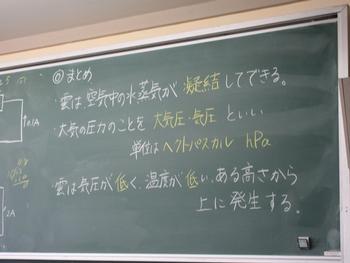 ◎まとめ
・雲は空気中の水蒸気が凝結してできる。
・大気の圧力のことを大気圧・気圧といい
単位はヘクトパスカル hPa
・雲は気圧が低く、温度が低い、ある高さから
上に発生する。
2A